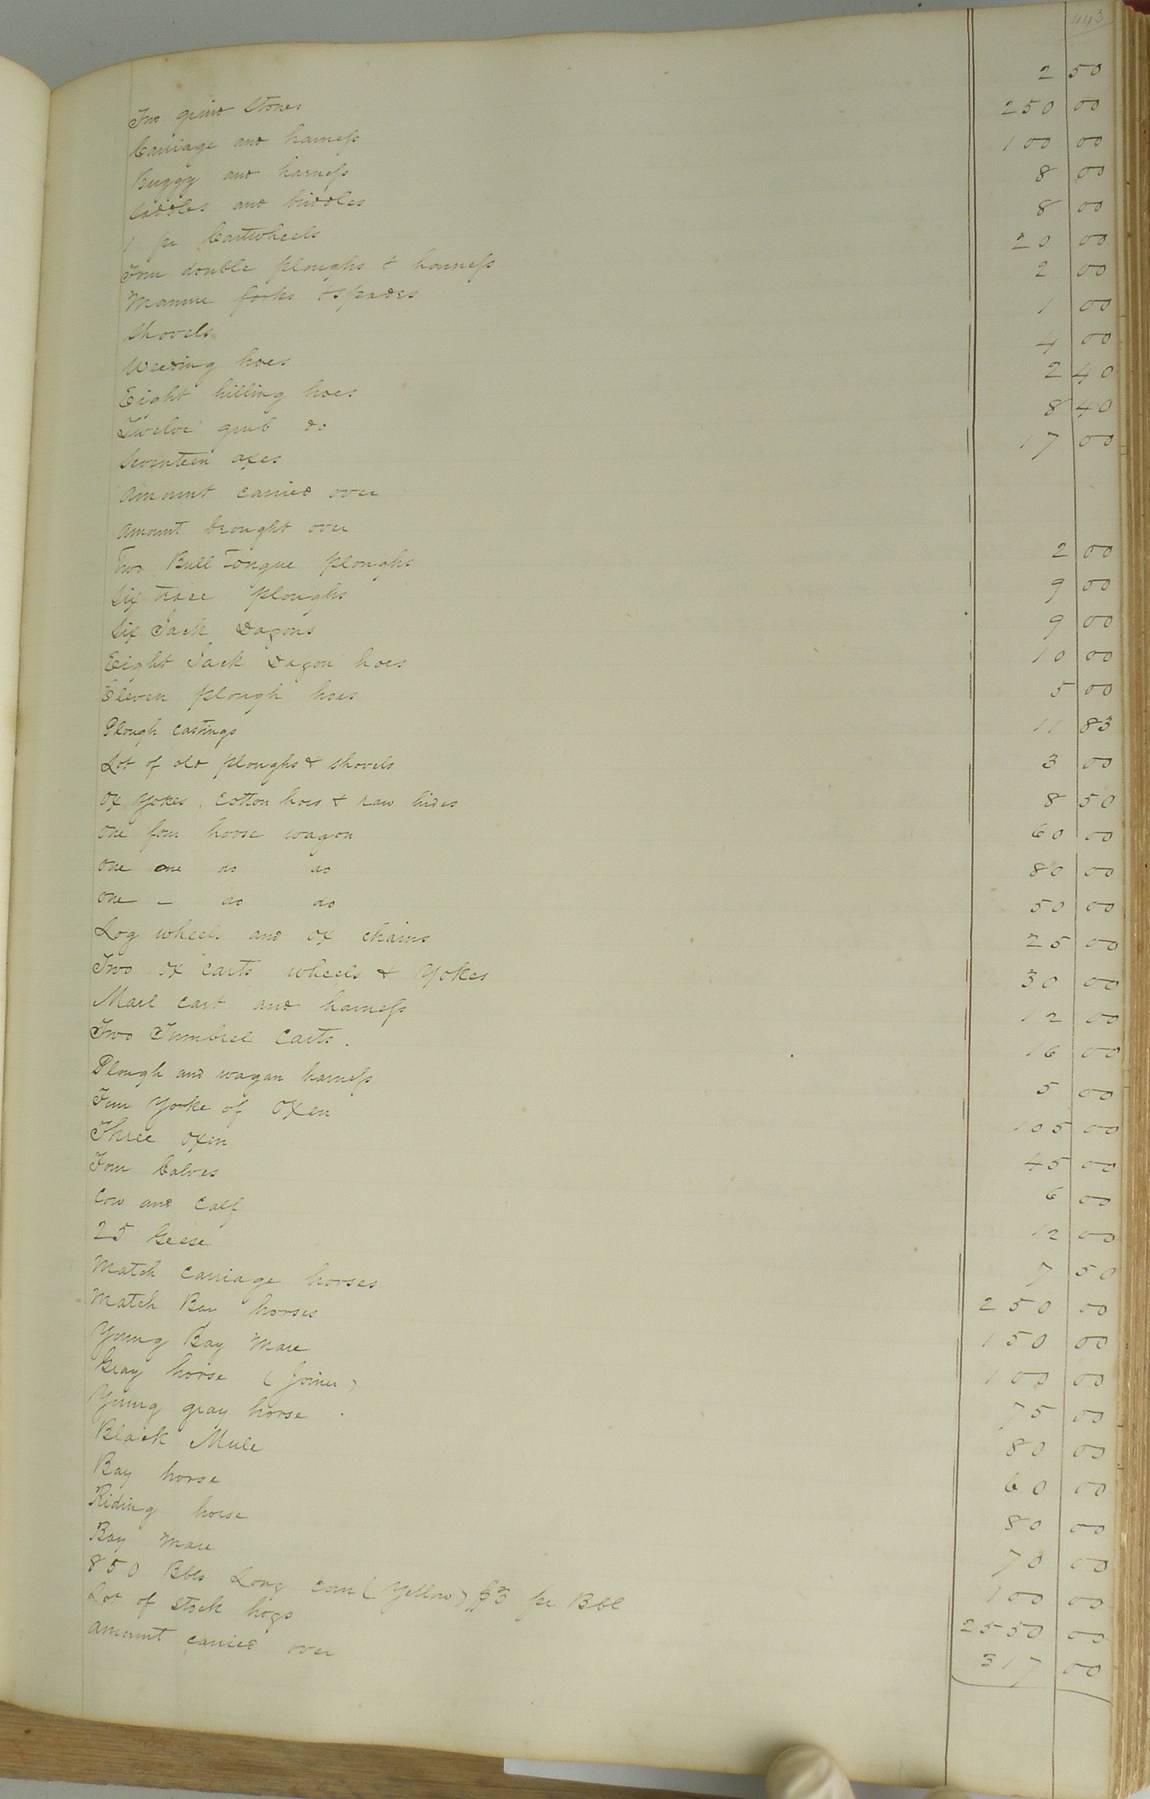 443
Two grind stones 2 50
Carriage and harness 250 00
Buggy and harness 100 00
Saddles and bridles 8 00
1 pr Cartwheels 8 00
Four double ploughs & harness 20 00
Manure forks & spades 2 00
Shovels 1 00
Weeding hoes 4 00
Eight hilling hoes 2 40
Twelve grub do 8 40
Seventeen axes 17 00
Amount carried over
Amount brought over
Two Bull Tongue ploughs 2 00
Six trace ploughs 9 00
Six Jack Dagons 9 00
Eight Jack Dagon hoes 10 00
Eleven plough hoes 5 00
Plough castings 11 83
Lot of old ploughs & shovels 3 00
Ox Yokes, cotton hoes & raw hides 8 50
One four horse wagon 60 00
One one do do 80 00
One – do do 50 00
Log wheels and ox chains 25 00
Two ox carts wheels & Yokes 30 00
Marl cart and harness 12 00
Two Tumbrel Carts. 16 00
Plough and wagan harness 5 00
Four Yoke of Oxen 105 00
Three oxen 45 00
Four Calves 6 00
Cow and Calf 12 00
25 Geese 7 50
Match carriage horses 250 00
Match Bay horses 150 00
Young Bay Mare 100 00
Gray horse (Joiner) 75 00
Young gray horse 80 00
Black Mule 60 00
Bay horse 80 00
Riding horse 70 00
Bay Mare 100 00
850 Bbls Long corn (Yellow) $3 pr Bbl 2550 00
Lot of stock hogs 317 00
Amount carried over